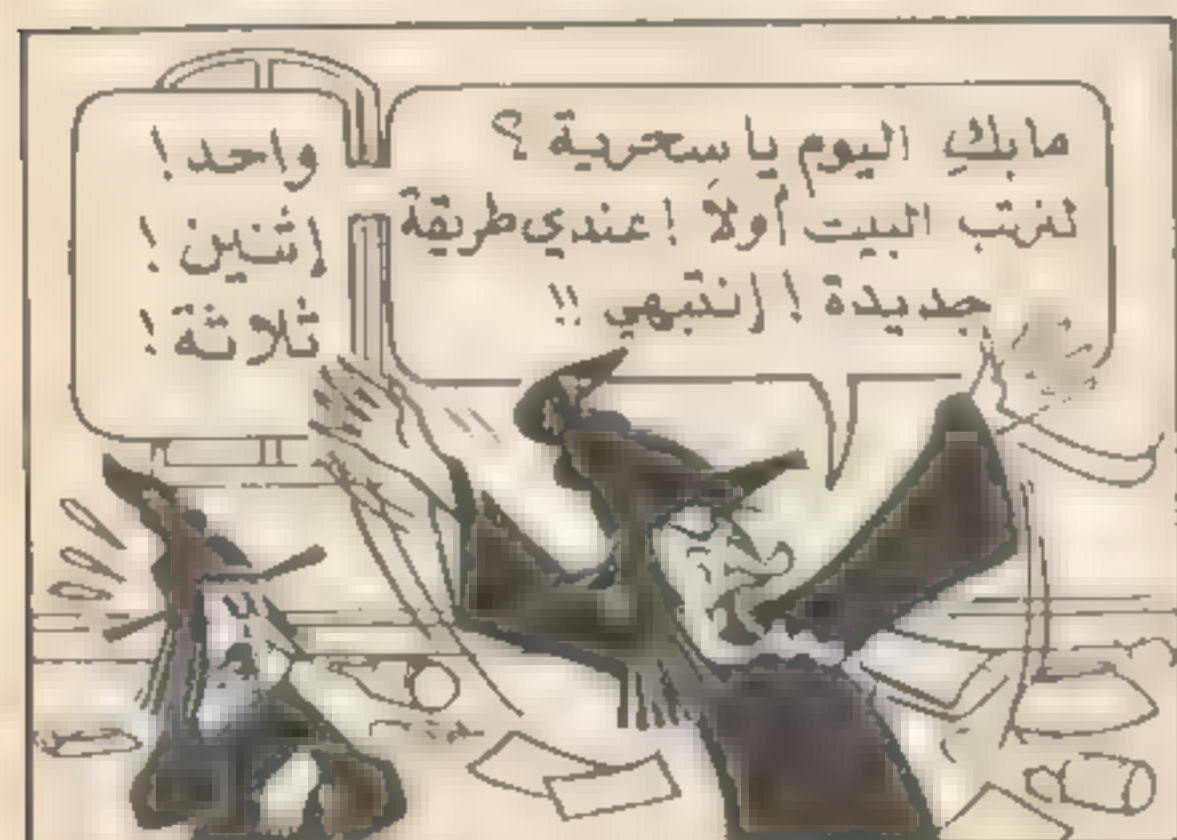 مابكِ اليوم يا سحرية ؟
لنرتب البيت أولاً ! عندي طريقة
جديدة ! إنتبهي !!
واحد !
إثنين !
ثلاثة !